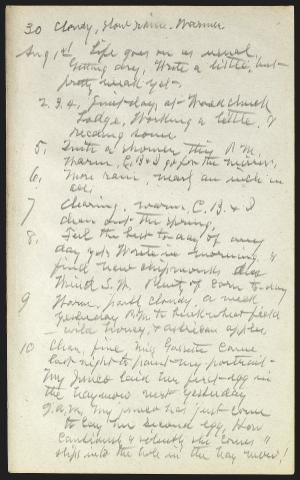 30 Cloudy, slow rain. Warmer
Aug 1st Life goes on as usual,
Getting dry, Write a little, but
pretty weak yet.
2.3.4, quiet days at Woodchuck
Lodge, Working a little, &
reading some
5, Quite a shower this P.M.
Warm, C.B. & I go for the
6, More rain, nearly an inch in
all,
7 Clearing, warm, C.B. & I
clean out the spring,
8, Feel the best to-day of any
day yet. Write in morning &
find new chipmunks
Plant of corn to-day
9 Warm, partly cloudy, a week
yesterday P.M. to buckwheat field
wild honey, & American apples.
10 Clear, fine, Miss Gazette came
last night to paint my portrait.
My junco laid her first egg in
the haymow nest yesterday
9 a.m. My junco has just come
to lay her second egg. How
confidently & silently she comes &
slips into the hole in the hay mow!